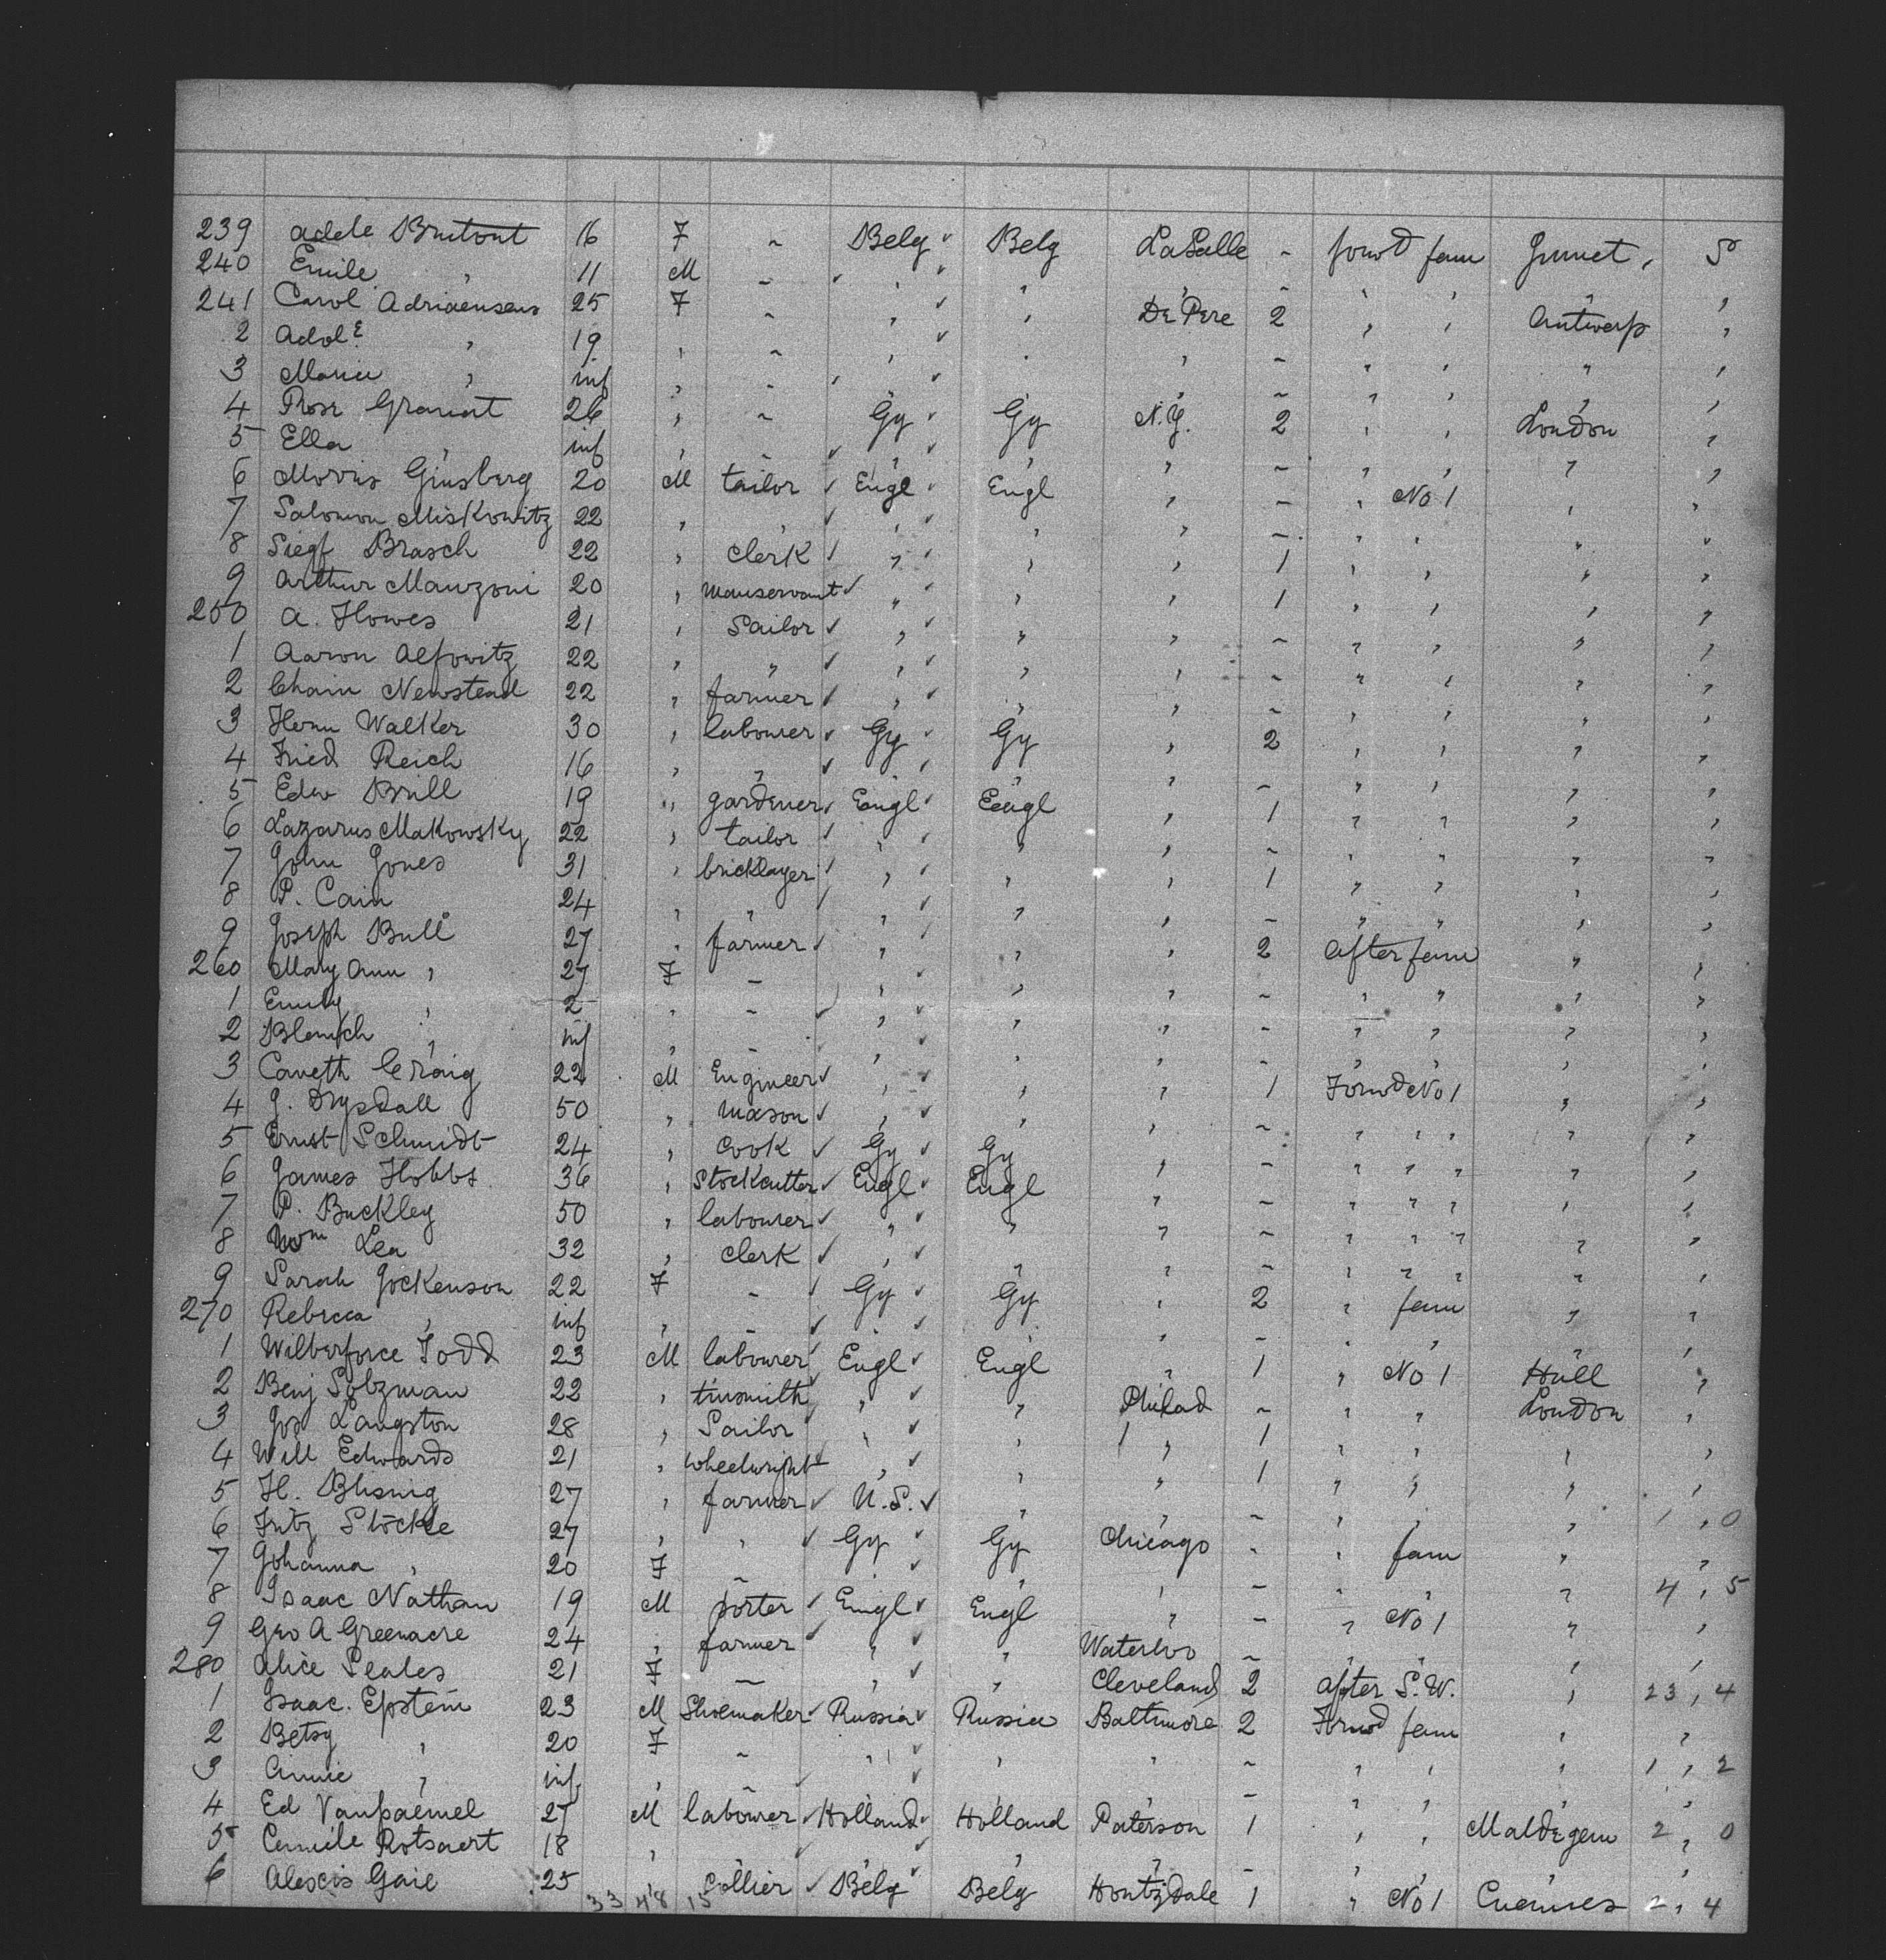 239 Adele Brutout 16 F ~ Belg ✓ Belg LaSalle - forwd fam Jumet , S
240 Emile , 11 M ~ ✓ , ✓ , , ~ , , , ,
241 Carol Adriaensens 25 F ~ , ✓ , De Pere 2 , , Antwerp ,
2 Adolᴱ , 19 , ~ , ✓ , , ~ , , " ,
3 Marie , inf , ~ ✓ , ✓ , , ~ , , , ,
4 Rose Granat 26 , ~ Gy ✓ Gy N.Y. 2 , , London ,
5 Ella , inf , ~ ✓ , ✓ , , ~ , , , ,
6 Morris Ginsberg 20 M tailor ✓ Engl ✓ Engl , ~ , No 1 , ,
7 Salomon Miskowitz 22 , , ✓ , ✓ , , ~ , , " ,
8 Siegf Brasch 22 , clerk ✓ , ✓ , , 1 , , " ,
9 Arthur Manzoni 20 , manservant ✓ " ✓ , , 1 , , , ,
250 A. Howes 21 , Sailor ✓ , ✓ " , ~ , , " ,
1 Aaron Alfowitz 22 , " ✓ , ✓ , , ~ " , , ,
2 Chain Newstead 22 , farmer ✓ , ✓ , , ~ , , , ,
3 Herm Walker 30 , labourer ✓ Gy ✓ Gy , 2 , , , ,
4 Fried Reich 16 , , ✓ , ✓ , , ~ , , , ,
5 Edw Brill 19 " gardener ✓ Engl ✓ Engl , 1 , , , ,
6 Lazarus Makowsky 22 , tailor ✓ , ✓ , , ~ , " , ,
7 John Jones 31 , bricklayer ✓ , ✓ , , 1 , , , ,
8 P. Cain 24 , " ✓ , ✓ , , ~ , " , ,
9 Joseph Bull 27 , farmer ✓ , ✓ , , 2 after fam " ,
260 Mary Ann , 27 F ~ , ✓ , , ~ , " , "
1 Emily , 2 , ~ ✓ , ✓ , " ~ , , , ,
2 , inf , ~ , ✓ , , ~ , , , ,
3 Craig 22 M Engineer ✓ , ✓ , , 1 Forwd No 1 , ,
4 J. Drysdall 50 , mason ✓ , ✓ , , ~ , , , , ,
5 Ernst Schmidt 24 , Cook ✓ Gy ✓ Gy , ~ , , , , ,
6 James Hobbs 36 , Stockcutter ✓ Engl ✓ Engl , ~ , , , , ,
7 P. Buckley 50 , labourer ✓ " ✓ " , ~ , , , , ,
8 Wm Lea 32 , clerk ✓ , ✓ , , ~ , , , , ,
9 Sarah Jockenson 22 F ~ ✓ Gy ✓ Gy , 2 , fam , ,
270 Rebecca , inf , ~ ✓ , ✓ , , ~ , , , ,
1 Wilberforce Todd 23 M labourer ✓ Engl ✓ Engl , 1 , No 1 Hull ,
2 Benj Solzman 22 , tinsmith ✓ , ✓ , Philad ~ , , London ,
3 Jos Langston 28 , Sailor , ✓ , 1 , 1 , , , ,
4 Will Edwards 21 , wheelwright ✓ , ✓ , " 1 " , , ,
5 H. Blisnig 27 , farmer ✓ U.S. ✓ , , ~ , , , 1 , 0
6 Fritz Stöckle 27 , , ✓ Gy ✓ Gy Chicago - , fam , ,
7 Johanna , 20 F ~ , ✓ , , ~ , , , 4 , 5
8 Isaac Nathan 19 M porter ✓ Engl ✓ Engl , ~ , No 1 , ,
9 Geo A Greenacre 24 , farmer ✓ , ✓ , Waterloo ~ , , , ,
280 Alice Seales 21 F ~ , ✓ , Cleveland 2 after S.W. , 23 , 4
1 Isaac. Epstein 23 M Shoemaker ✓ Russia ✓ Russia Baltimore 2 Forwd fam , ,
2 Betsy , 20 F ~ , ✓ , , ~ , , , 1 , 2
3 Annie , inf , ~ ✓ , ✓ , , ~ , , , ,
4 Ed Vanpaemel 27 M labourer ✓ Holland ✓ Holland Paterson 1 , , Maldegem 2 , 0
5 Camile Rotsaert 18 , , ✓ , ✓ , , ~ , , , ,
6 Alexis Gaie 25 , Collier ✓ Belg Belg Houtzdale 1 , No 1 Cuesmes 2 , 4
33 48 15